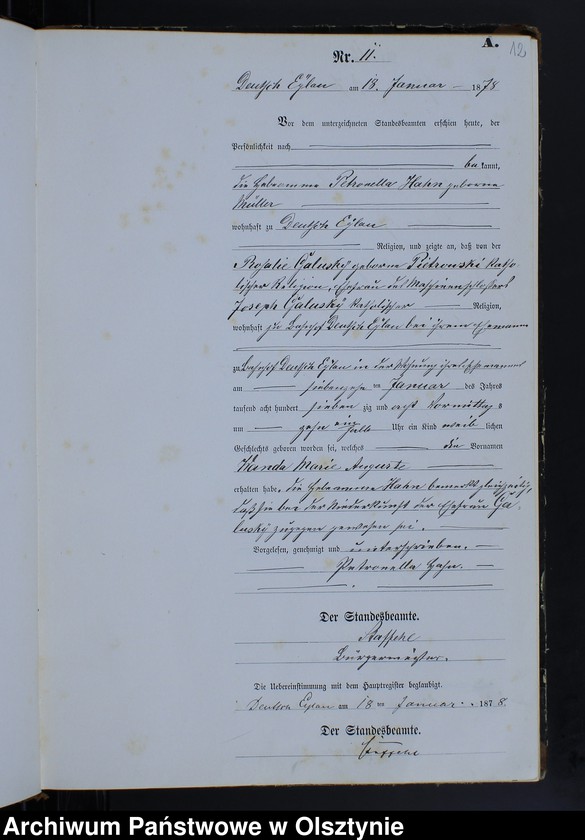 A.
12
Nr. 11.
Deutsch Eylau am 18. Januar 1878
Vor dem unterzeichneten Standesbeamten erschien heute, der
Persönlichkeit nach
bekannt,
die Hebeamme Petronella Hahn geborne
Müller
wohnhaft zu Deutsch Eylau
Religion, und zeigte an, daß von der
Rosalie Galusky geborne Pietrowski katho-
lischer Religion, Ehefrau des Maschinenschlossers
Joseph Galusky katholischer Religion,
wohnhaft zu Bahnhof Deutsch Eylau bei ihrem Ehemann
zu Bahnhof Deutsch Eylau in der Wohnung ihres Ehemannes
am siebenzehnten Januar des Jahres
tausend acht hundert siebenzig und acht Vormittags
um zehn ein halb Uhr ein Kind weiblichen
Geschlechts geboren worden sei, welches die Vornamen
Wanda Marie Auguste
erhalten habe, die Hebeamme Hahn bemerkt gleichzeitig,
daß sie bei der Niederkunft der Ehefrau Ga-
lusky zugegen gewesen sei.
Vorgelesen, genehmigt und unterschrieben.
Petronella Hahn.
Der Standesbeamte.
Bürgermeister.
Die Uebereinstimmung mit dem Hauptregister beglaubigt.
Deutsch Eylau am 18ten Januar 1878.
Der Standesbeamte.
Archiwum Państwowe w Olsztynie